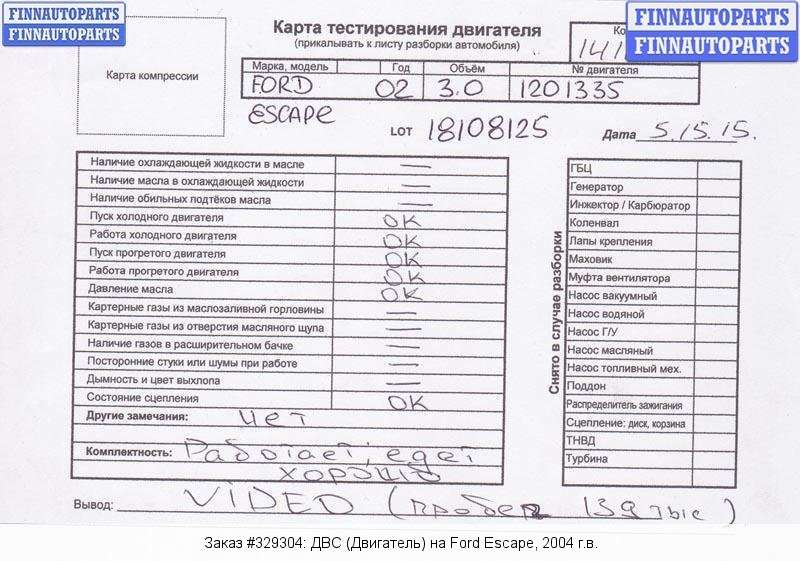 FINNAUTOPARTS
FINNAUTOPARTS
Карта тестирования двигателя
(прикалывать к листу разборки автомобиля)
FINNAUTOPARTS
FINNAUTOPARTS
Карта компрессии
Марка, модель Год Объём № двигателя
FORD 02 3.0 1201335
ESCAPE
LOT 18108125 Дата 5.15.15.
Наличие охлаждающей жидкости в масле —
Наличие масла в охлаждающей жидкости —
Наличие обильных подтёков масла —
Пуск холодного двигателя OK
Работа холодного двигателя OK
Пуск прогретого двигателя OK
Работа прогретого двигателя OK
Давление масла OK
Картерные газы из маслозаливной горловины —
Картерные газы из отверстия масляного щупа —
Наличие газов в расширительном бачке —
Посторонние стуки или шумы при работе —
Дымность и цвет выхлопа —
Состояние сцепления OK
Другие замечания: нет
Комплектность: Работает, едет
хорошо
Вывод: VIDEO (пробег 139 тыс)
Снято в случае разборки
ГБЦ
Генератор
Инжектор / Карбюратор
Коленвал
Лапы крепления
Маховик
Муфта вентилятора
Насос вакуумный
Насос водяной
Насос Г/У
Насос масляный
Насос топливный мех.
Поддон
Распределитель зажигания
Сцепление: диск, корзина
ТНВД
Турбина
Заказ #329304: ДВС (Двигатель) на Ford Escape, 2004 г.в.